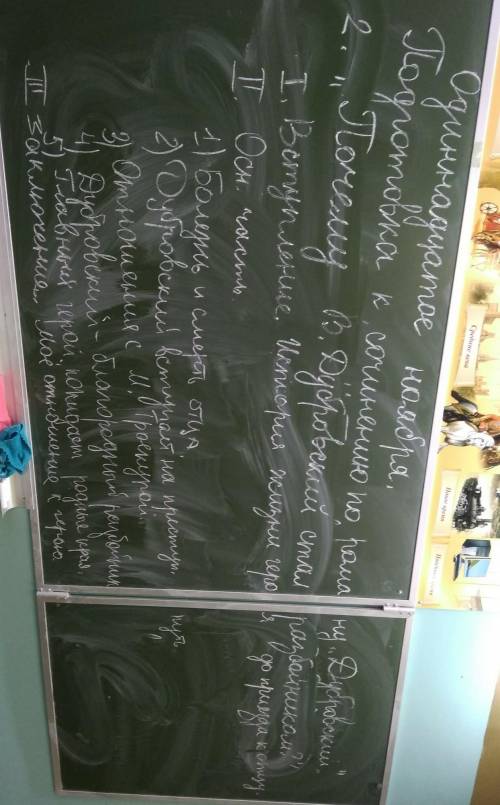 Одиннадцатое ноября.
Подготовка к сочинению по роману „Дубровский"
2. „Почему В. Дубровский стал разбойником?"
I. Вступление. История жизни героя до приезда к отцу
II. Осн. часть.
1) Болезнь и смерть отца
2) Дубровский вступает на преступ. путь
3) Отношения с М. Троекурой.
4) Дубровский - благородный разбойник
5) Главный герой покидает родные края.
III Заключение. Моё отношение к герою.
Средние века
Новое время